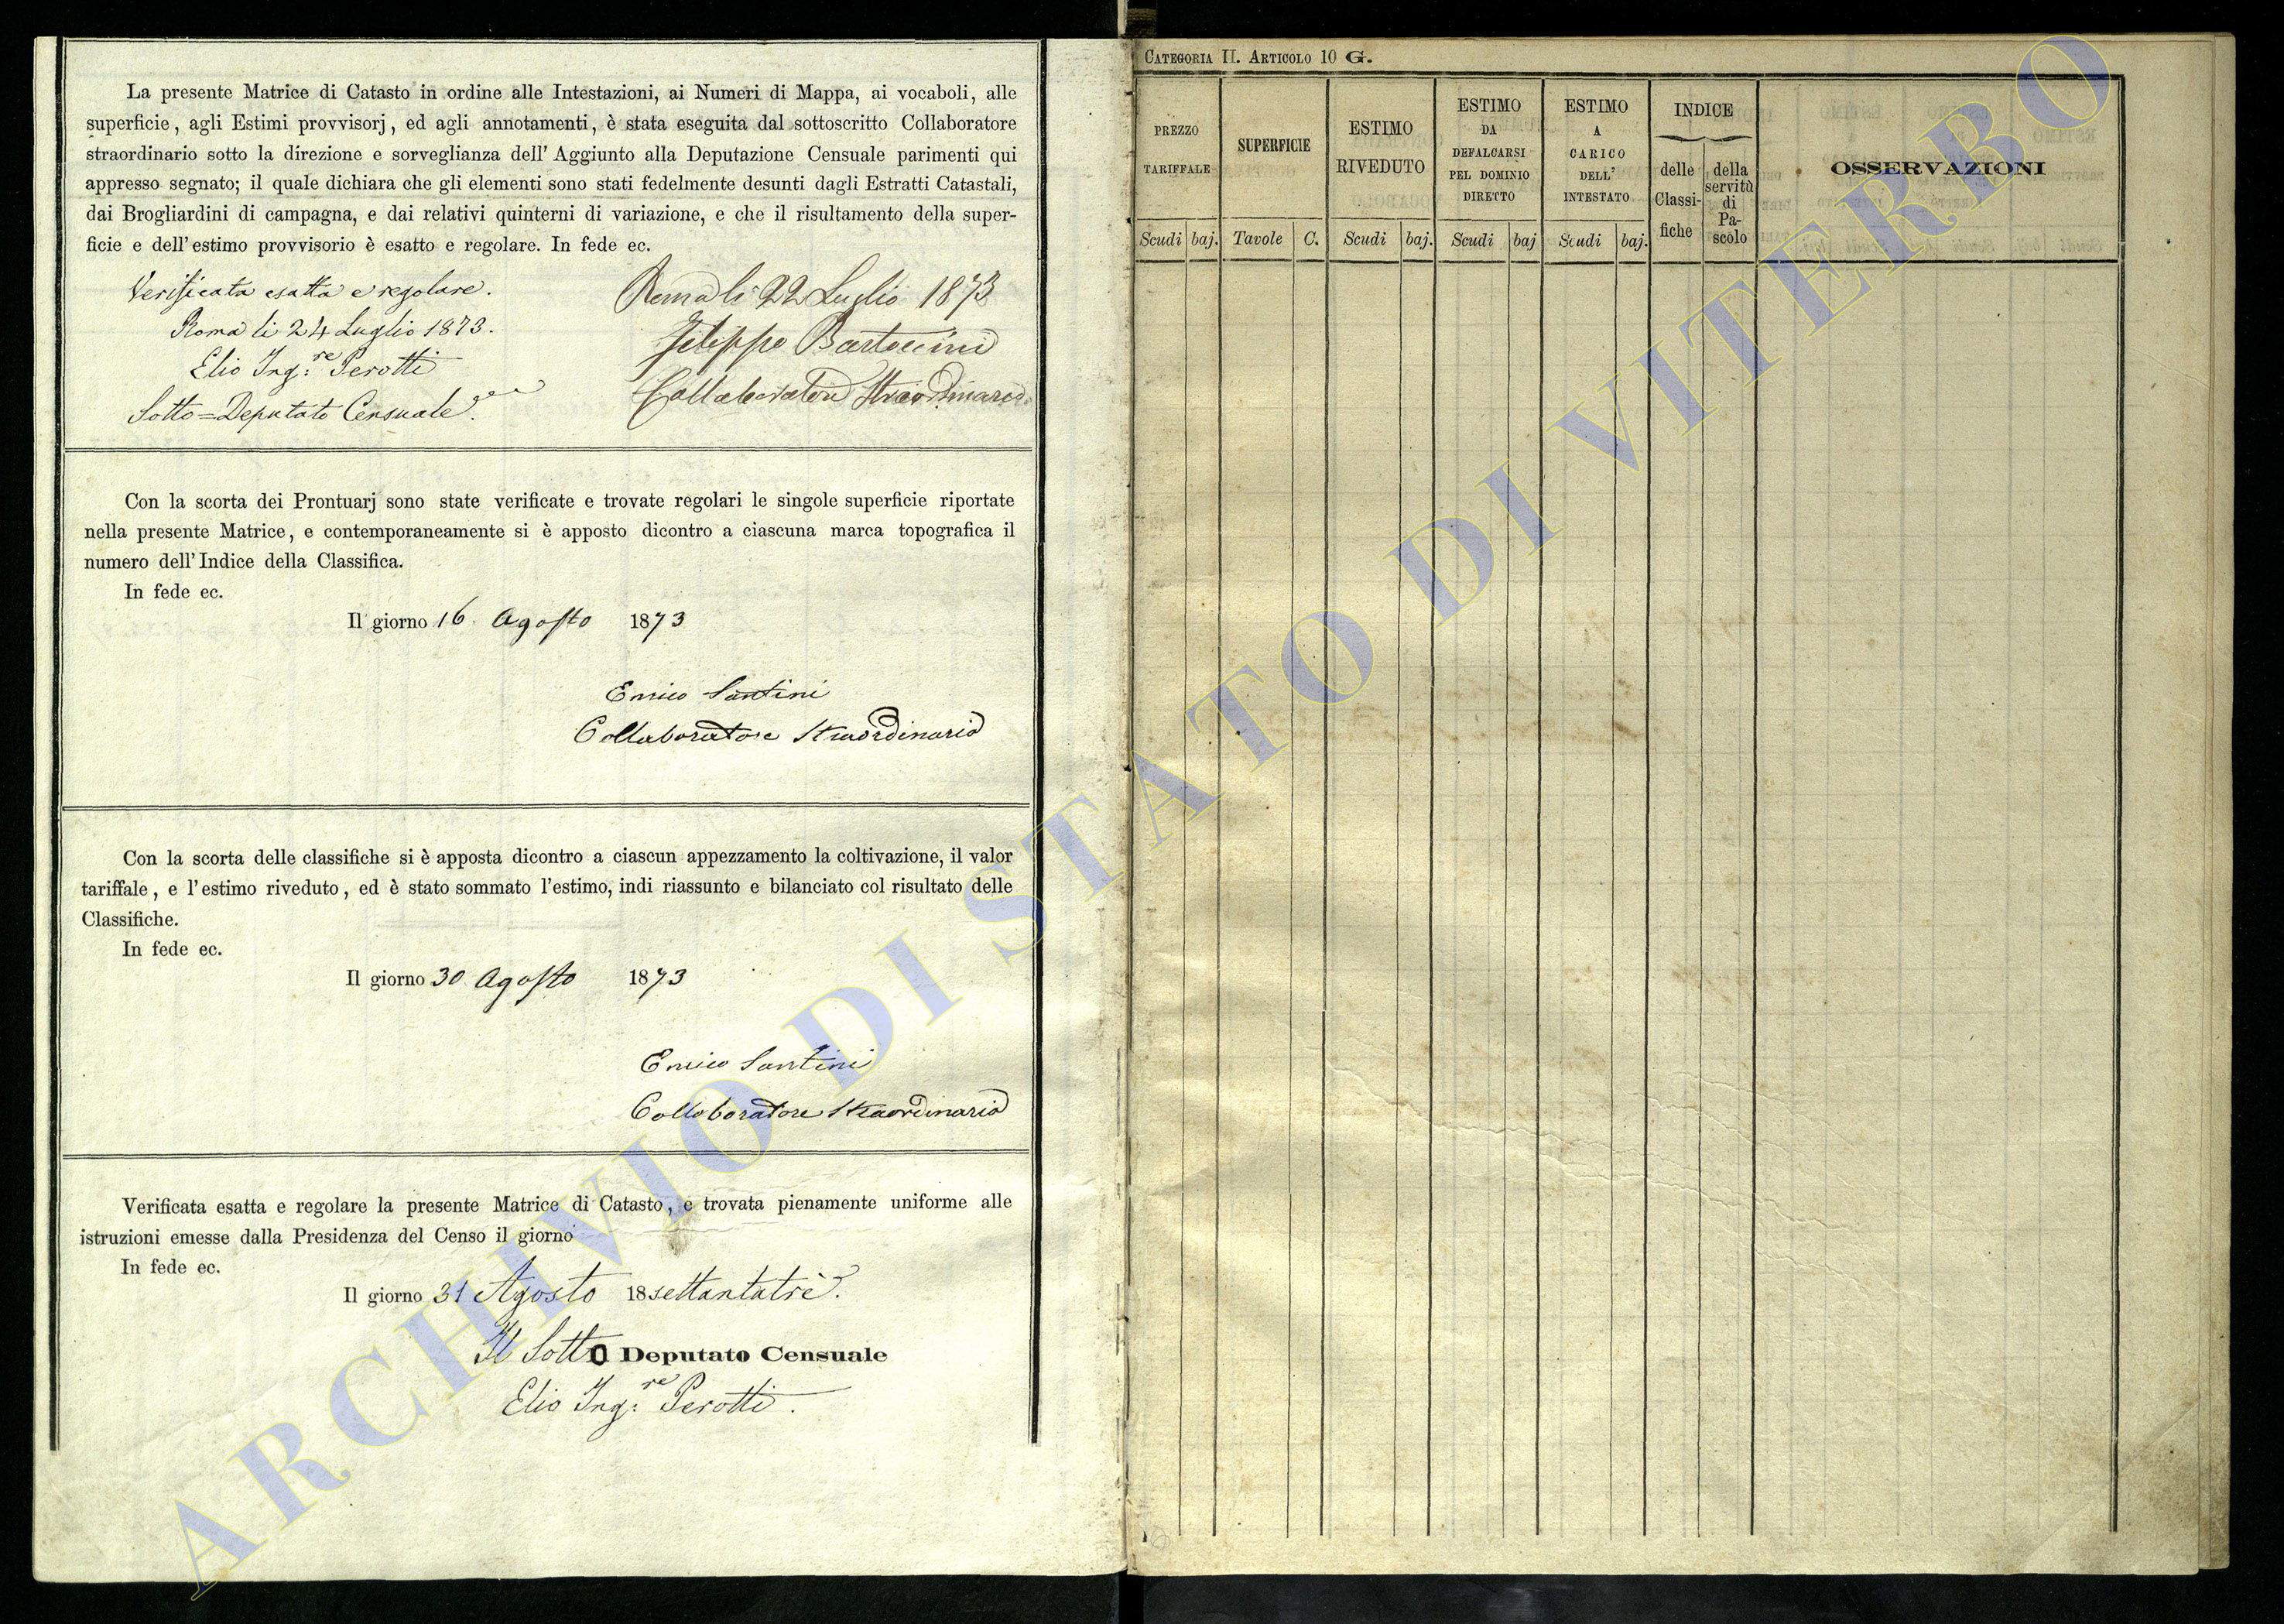 La presente Matrice di Catasto in ordine alle Intestazioni, ai Numeri di Mappa, ai vocaboli, alle
superficie, agli Estimi provvisorj, ed agli annotamenti, è stata eseguita dal sottoscritto Collaboratore
straordinario sotto la direzione e sorveglianza dell'Aggiunto alla Deputazione Censuale parimenti qui
appresso segnato; il quale dichiara che gli elementi sono stati fedelmente desunti dagli Estratti Catastali,
dai Brogliardini di campagna, e dai relativi quinterni di variazione, e che il risultamento della super-
ficie e dell'estimo provvisorio è esatto e regolare. In fede ec.
Verificata esatta e regolare.
Roma li 24 Luglio 1873.
Elio Ing:re Perotti
Sotto=Deputato Censuale
Roma li 22 Luglio 1873
Filippo Bartoccini
Collaboratore Straordinario
Con la scorta dei Prontuarj sono state verificate e trovate regolari le singole superficie riportate
nella presente Matrice, e contemporaneamente si è apposto dicontro a ciascuna marca topografica il
numero dell'Indice della Classifica.
In fede ec.
Il giorno 16 Agosto 1873
Enrico Santini
Collaboratore Straordinario
Con la scorta delle classifiche si è apposta dicontro a ciascun appezzamento la coltivazione, il valor
tariffale, e l'estimo riveduto, ed è stato sommato l'estimo, indi riassunto e bilanciato col risultato delle
Classifiche.
In fede ec.
Il giorno 30 Agosto 1873
Enrico Santini
Collaboratore Straordinario
Verificata esatta e regolare la presente Matrice di Catasto, e trovata pienamente uniforme alle
istruzioni emesse dalla Presidenza del Censo il giorno
In fede ec.
Il giorno 31 Agosto 18settantatrè.
Il Sotto Deputato Censuale
Elio Ing:re Perotti.
CATEGORIA II. ARTICOLO 10 G.
PREZZO
TARIFFALE
SUPERFICIE
ESTIMO
RIVEDUTO
ESTIMO
DA
DEFALCARSI
PEL DOMINIO
DIRETTO
ESTIMO
A
CARICO
DELL'
INTESTATO
INDICE
delle
Classi-
fiche
della
servitù
di
Pa-
scolo
OSSERVAZIONI
Scudi baj. Tavole C. Scudi baj. Scudi baj Scudi baj.
ARCHIVIO DI STATO DI VITERBO